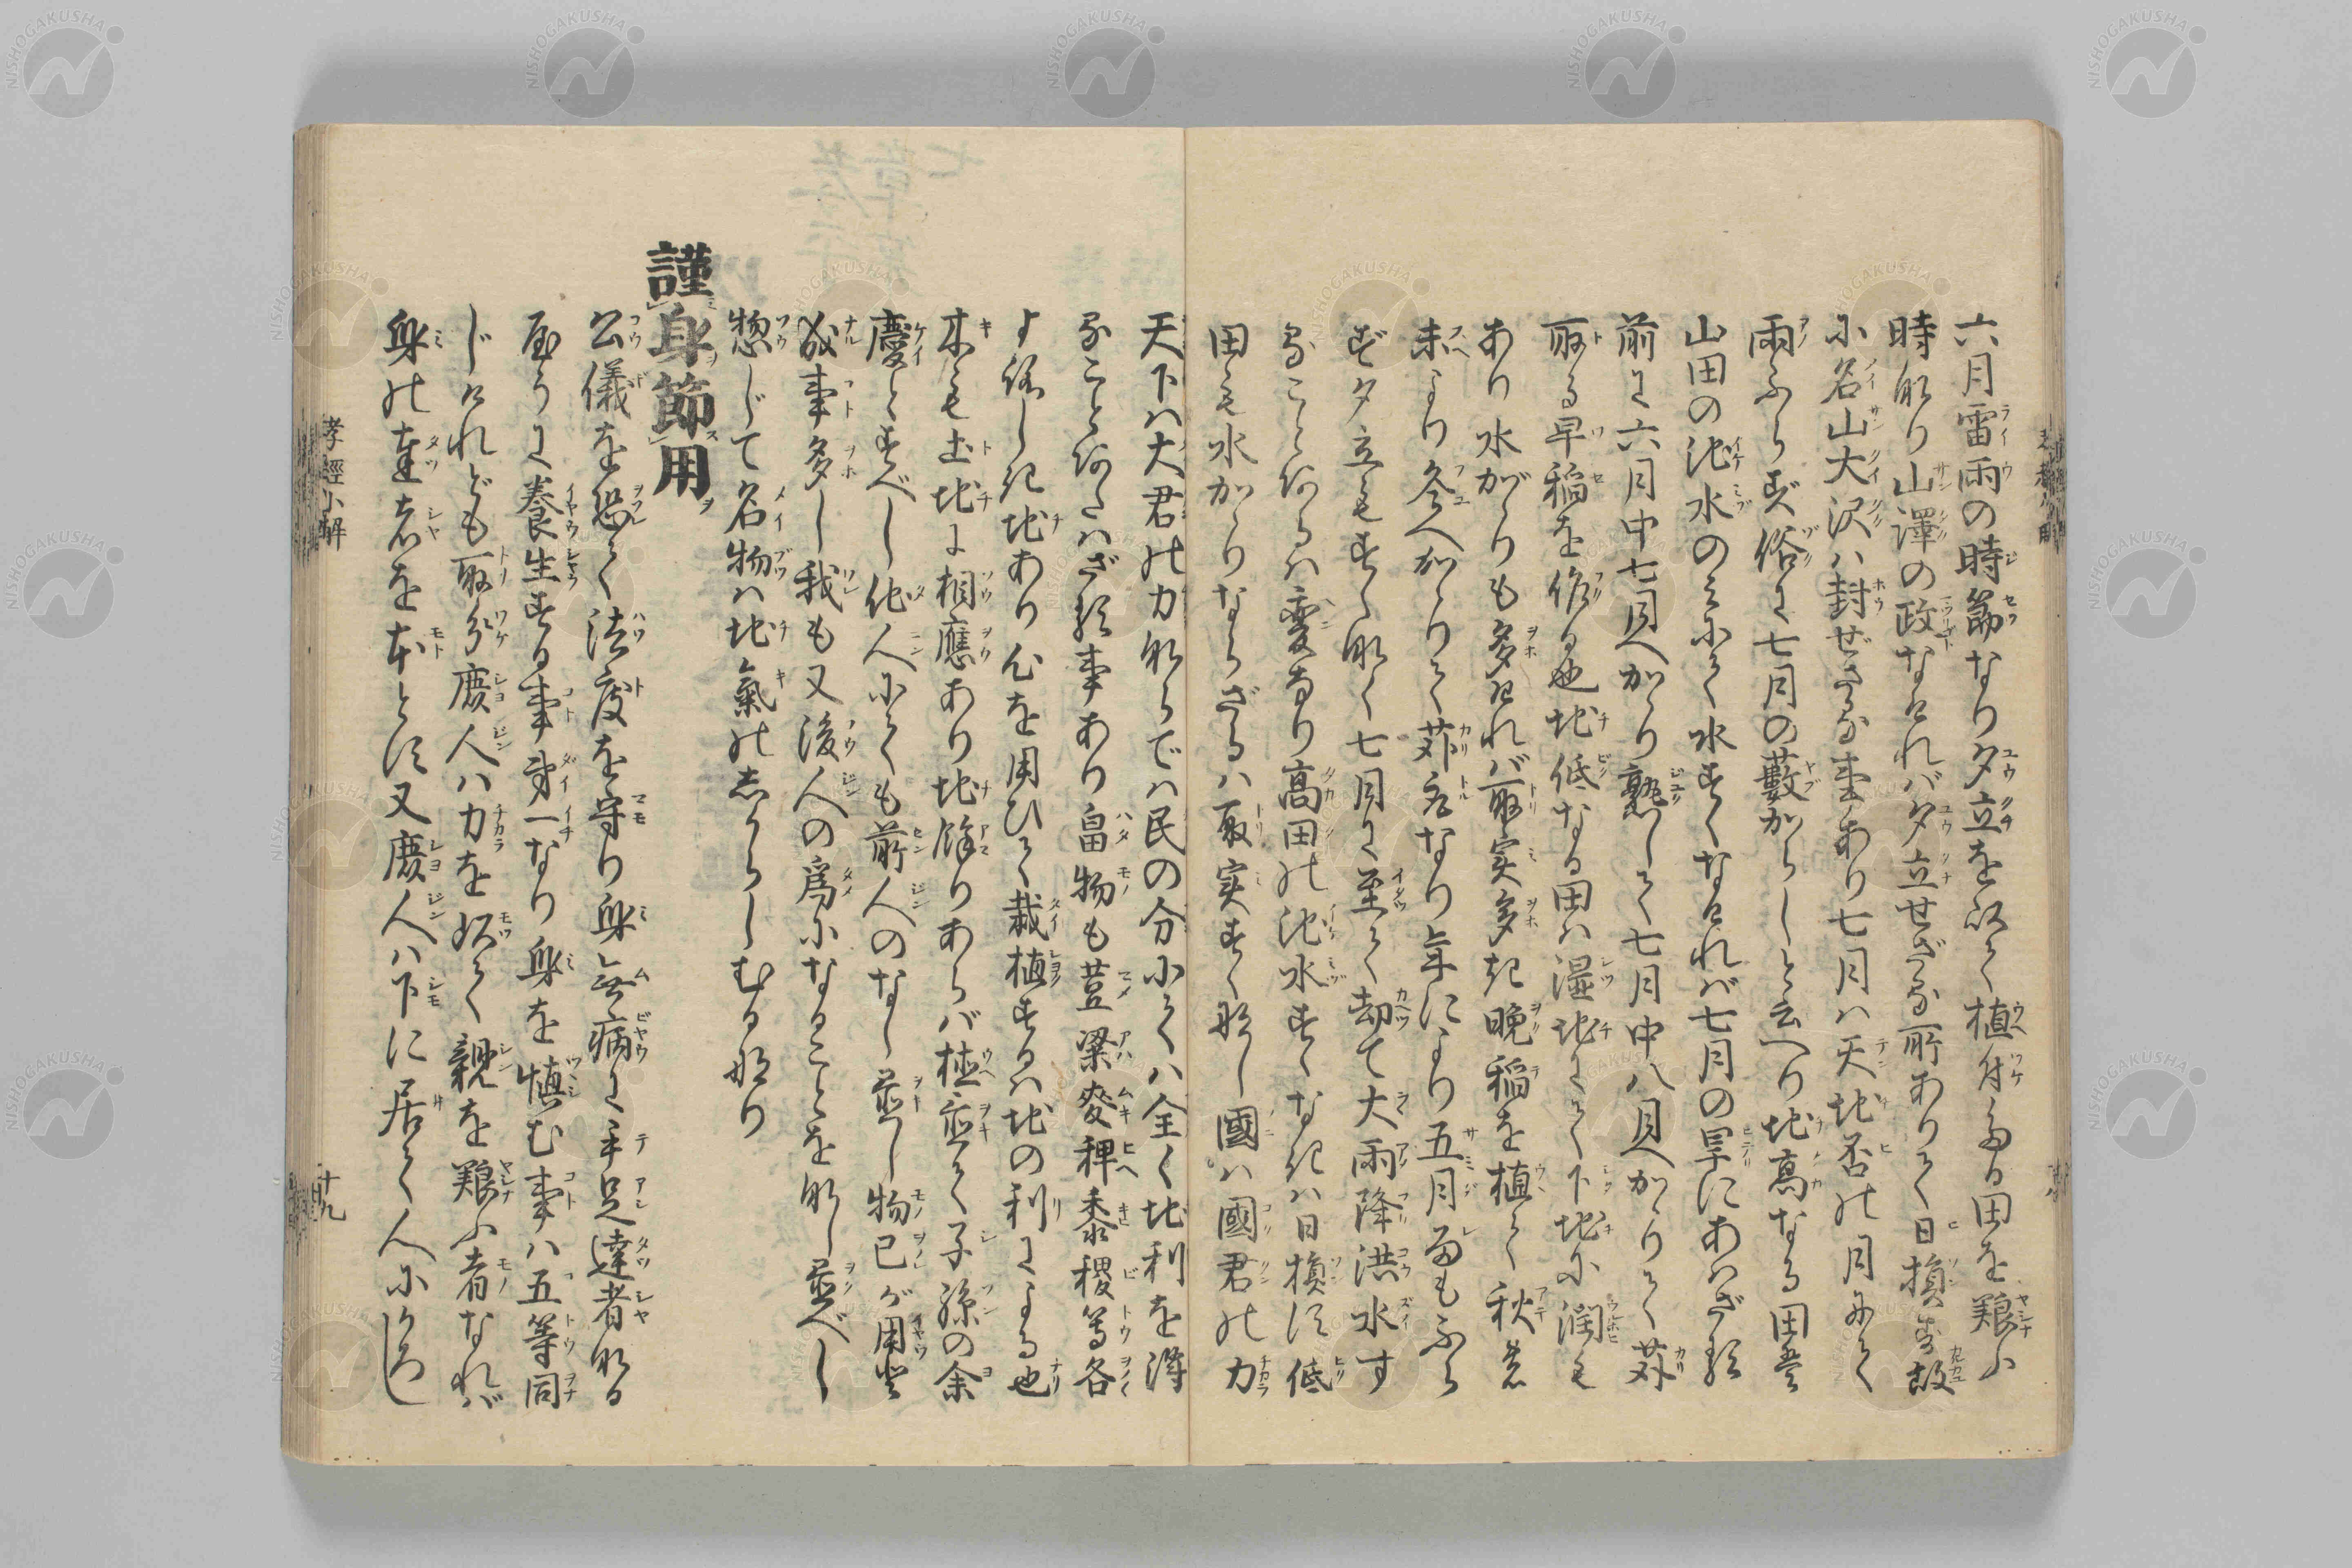 六月雷雨の時節なり夕立を以て植付たる田を養ふ
時なり山澤の政なければ夕立せざる所ありて日損す故
に名山大沢ハ封ぜざる事あり七月ハ天地否の月にて
雨ふらず俗に七月の藪からしと云へり地高なる田并
山田の池水のみにて水すくなければ七月の旱にあハざる
前に六月中七月へかゝり熟して七月中八月へかゝりて苅
取る早稲を作る也地低なる田ハ湿地にて下地に潤も
あり水がゝりも多ければ取実多き晩稲を植て秋
末より冬へかゝりて苅取なり年により五月雨もふら
ず夕立もすくなく七月に至て却て大雨降洪水す
ることあるハ変なり高田の池水すくなきハ日損し低
田も水かゝりならざるハ取実すくなし國ハ國君の力
天下ハ大君の力ならでハ民の分にてハ全く地利を得
ることあたハざる事あり畠物も荳粱麥稗黍稷等各
よろしき地あり心を用ひて栽植するハ地の利による也
木も土地に相應あり地餘りあらバ植置て子孫の余
慶とすべし他人にても前人のなし置し物己が用と
成事多し我も又後人の爲になることをなし置べし
惣じて名物ハ地氣のしからしむる也
謹身節用
公儀を恐て法度を守り身無病に手足達者なる
やうに養生する事第一なり身を慎む事ハ五等同
じけれども取分庶人ハ力を以て親を養ふ者なれば
身の達者を本とす又庶人ハ下に居て人に
孝經小解
十九
NISHOGAKUSHA